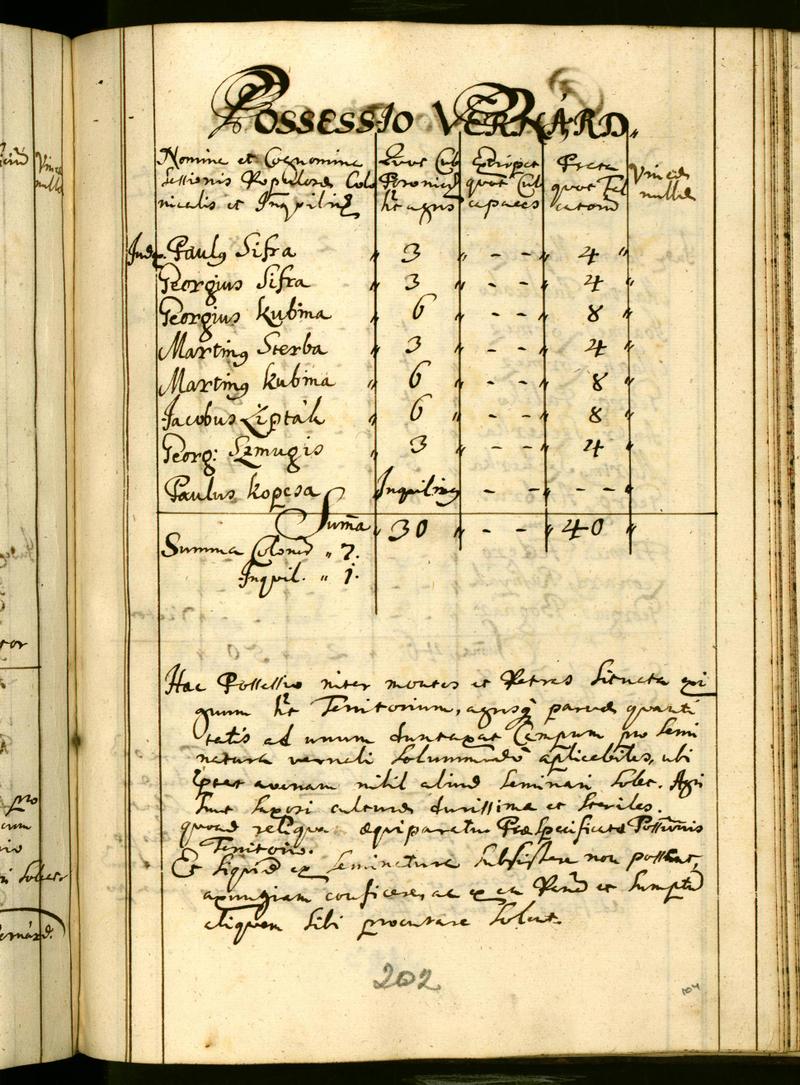 POSSESSIO VERNÁRD.
Nomina et Cognomina
Sessionis Populores Colo
nicalis et Inquilinor
Quot Cub
Posonien
ht agros
Extirpat
quot Cub
capaces
Prata
quot Fal
catorū
Vineas
nullas
Judex. Paulus Sifra " 3 " - - " 4 "
Georgius Sifra " 3 " - - " 4 "
Georgius Kubina " 6 " - - " 8 "
Martinus Sterba " 3 " - - " 4 "
Martinus Kubina " 6 " - - " 8 "
Jacobus Lipták " 6 " - - " 8 "
Georg: Szmugis " 3 " - - " 4 "
Paulus Kopcsa Inquilinus - - " - - "
Sum̄a " 30 " - - " 40 "
Summa Colonor " 7.
Inquil. " 1.
Hac Possessio inter montes et Petras Situata exi
guum ht Territorium, agrosq parvae quanti
tatis ad unum duntaxat Campum pro Semi
natura vernali Solummodo aplicabiles, ubi
praeter avenam nihil aliud Seminari Solet. Agri
Sunt Saxosi culturae durissima et Steriles.
quoad reliqua aequiparatur Praespecificatae Possionis
Territorio.
Et Siquid ex Seminatura Subsistere non possent,
axungiam conficere, ac ex ea Panem et Sumptū
aliquem Sibi procurare Solent.
202
104